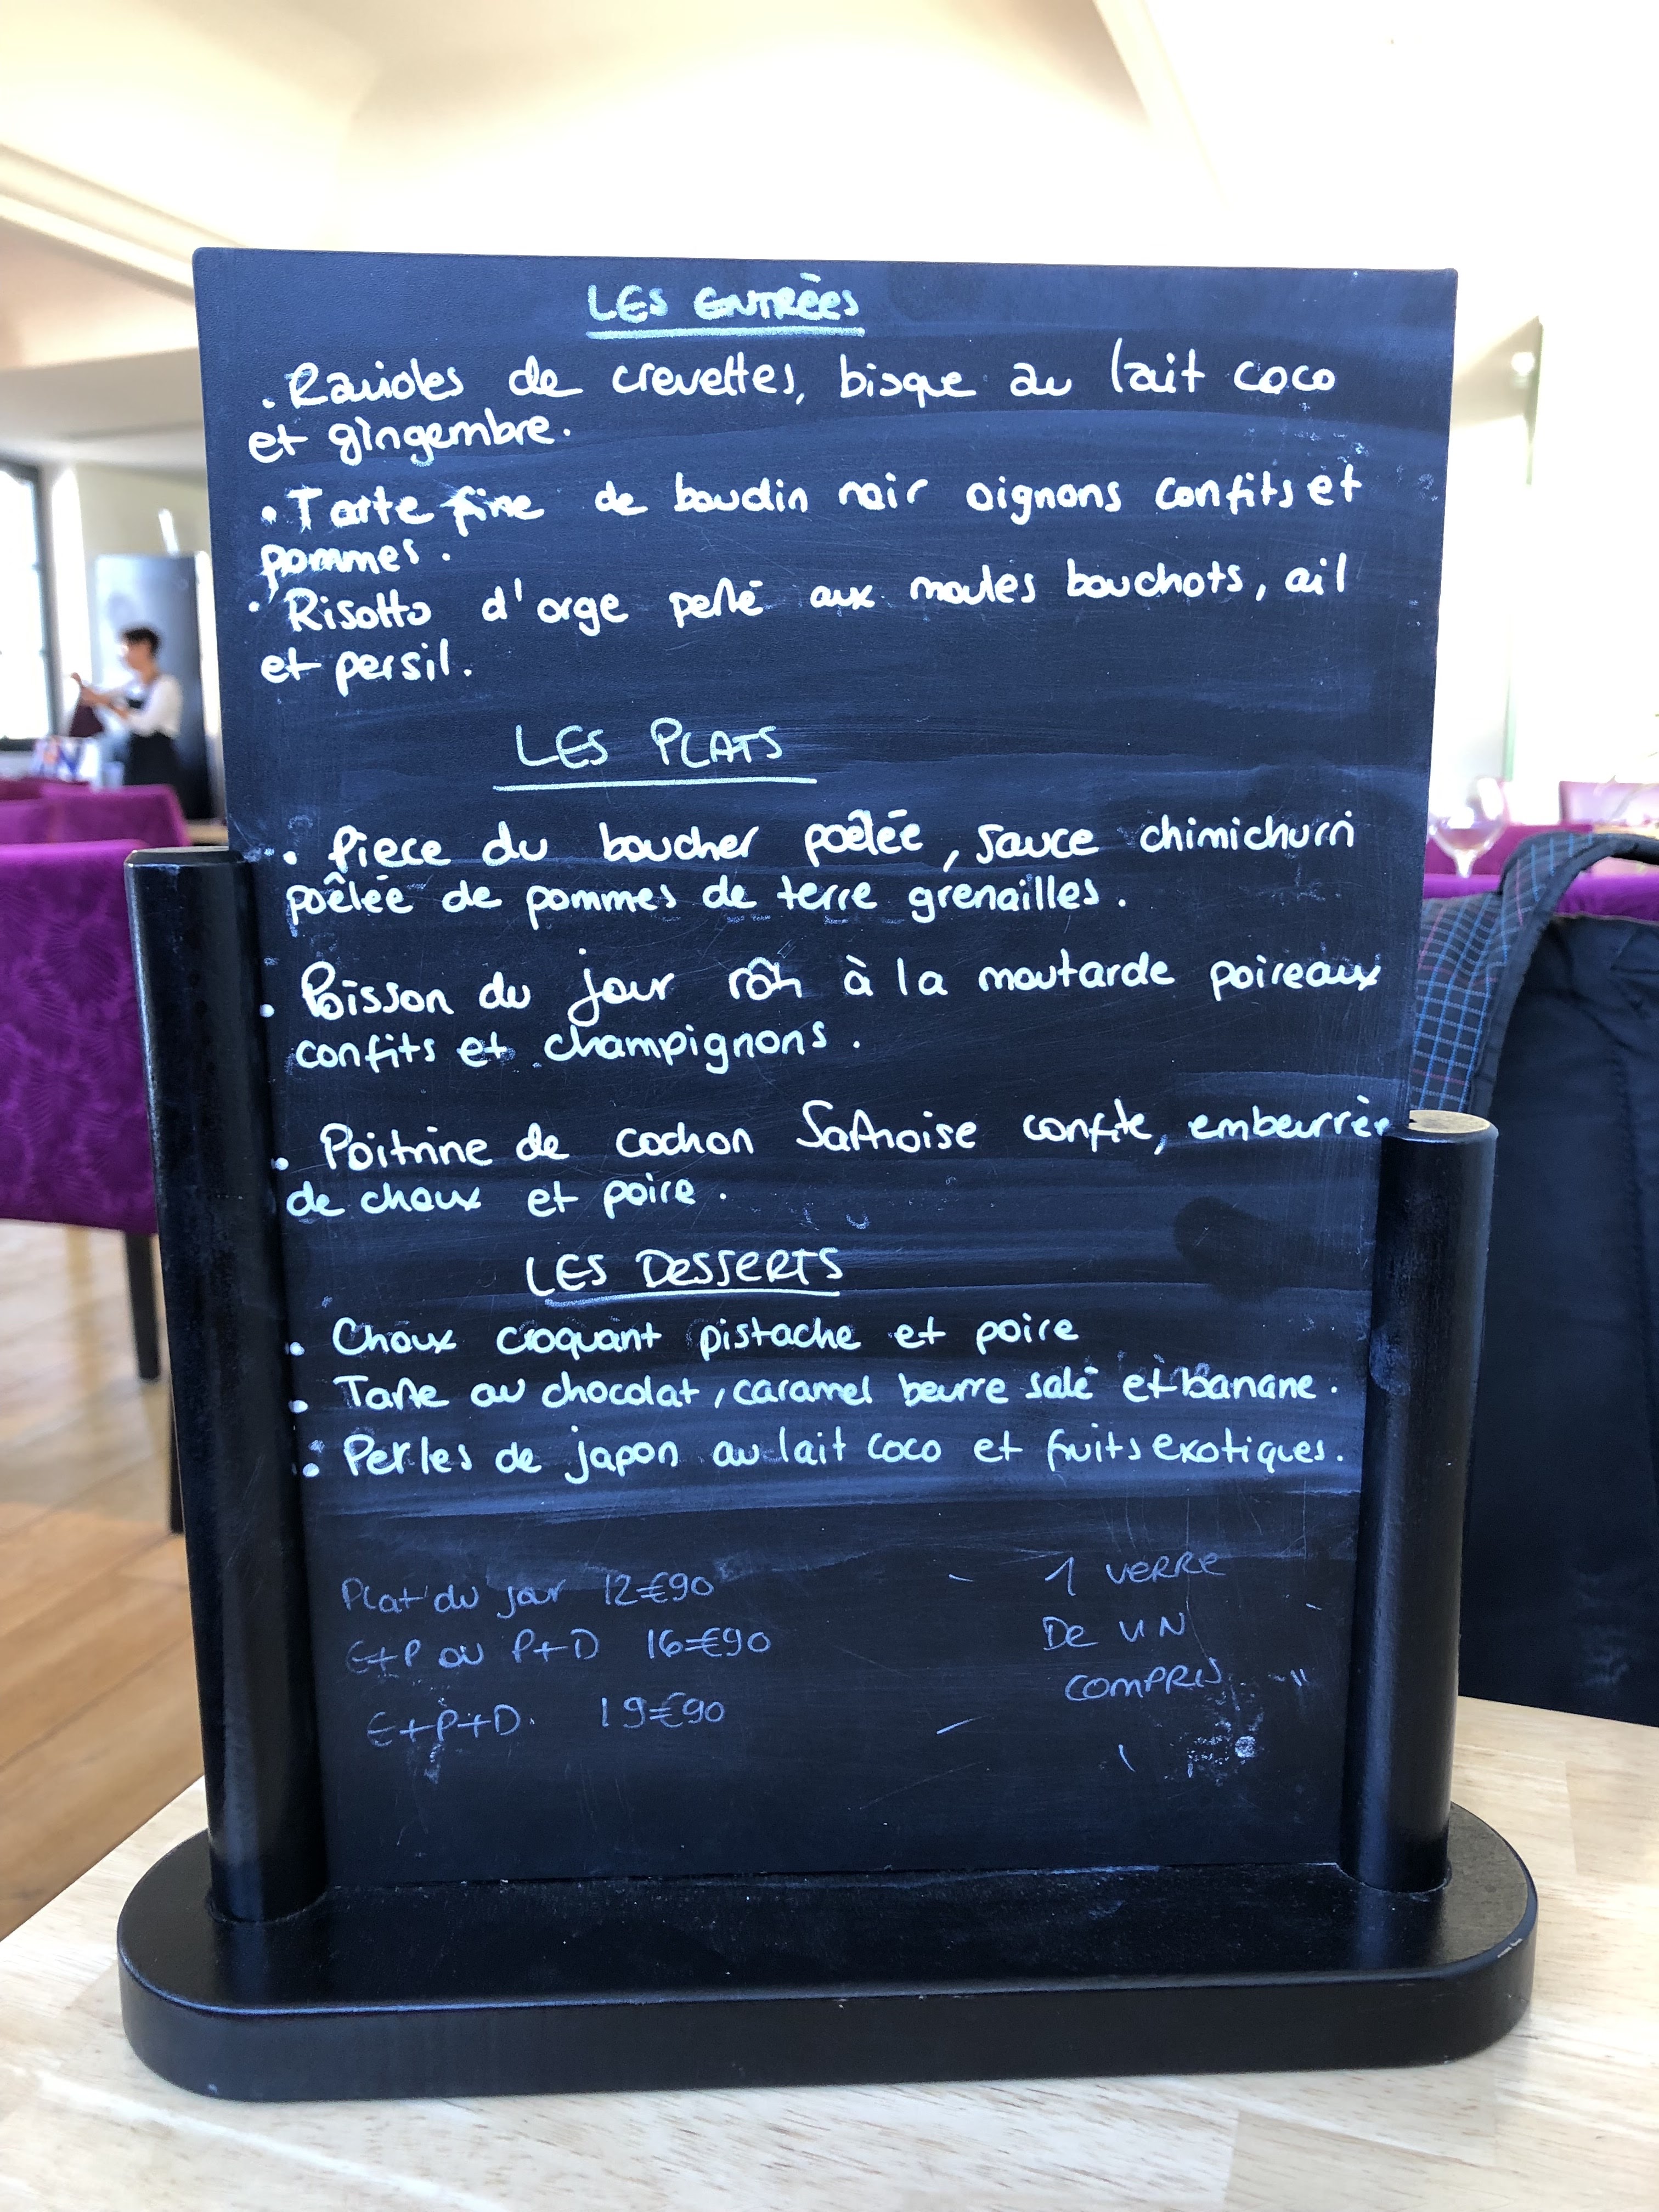 LES ENTRÈES
. Ravioles de crevettes, bisque au lait coco
et gingembre.
• Tarte fine de boudin noir oignons confits et
pommes.
• Risotto d'orge perlé aux moules bouchots, ail
et persil.
LES PLATS
• Piece du boucher poêlée, sauce chimichurri
poêlée de pommes de terre grenailles.
• Poisson du jour rôti à la moutarde poireaux
confits et champignons.
• Poitrine de cochon Sarthoise confite, embeurrèe
de choux et poire.
LES DESSERTS
• Choux croquant pistache et poire
• Tarte au chocolat, caramel beurre salé et banane.
• Perles de japon au lait coco et fruits exotiques.
Plat du jour 12€90
E+P ou P+D 16€90
E+P+D. 19€90
1 VERRE
De VIN
COMPRIS